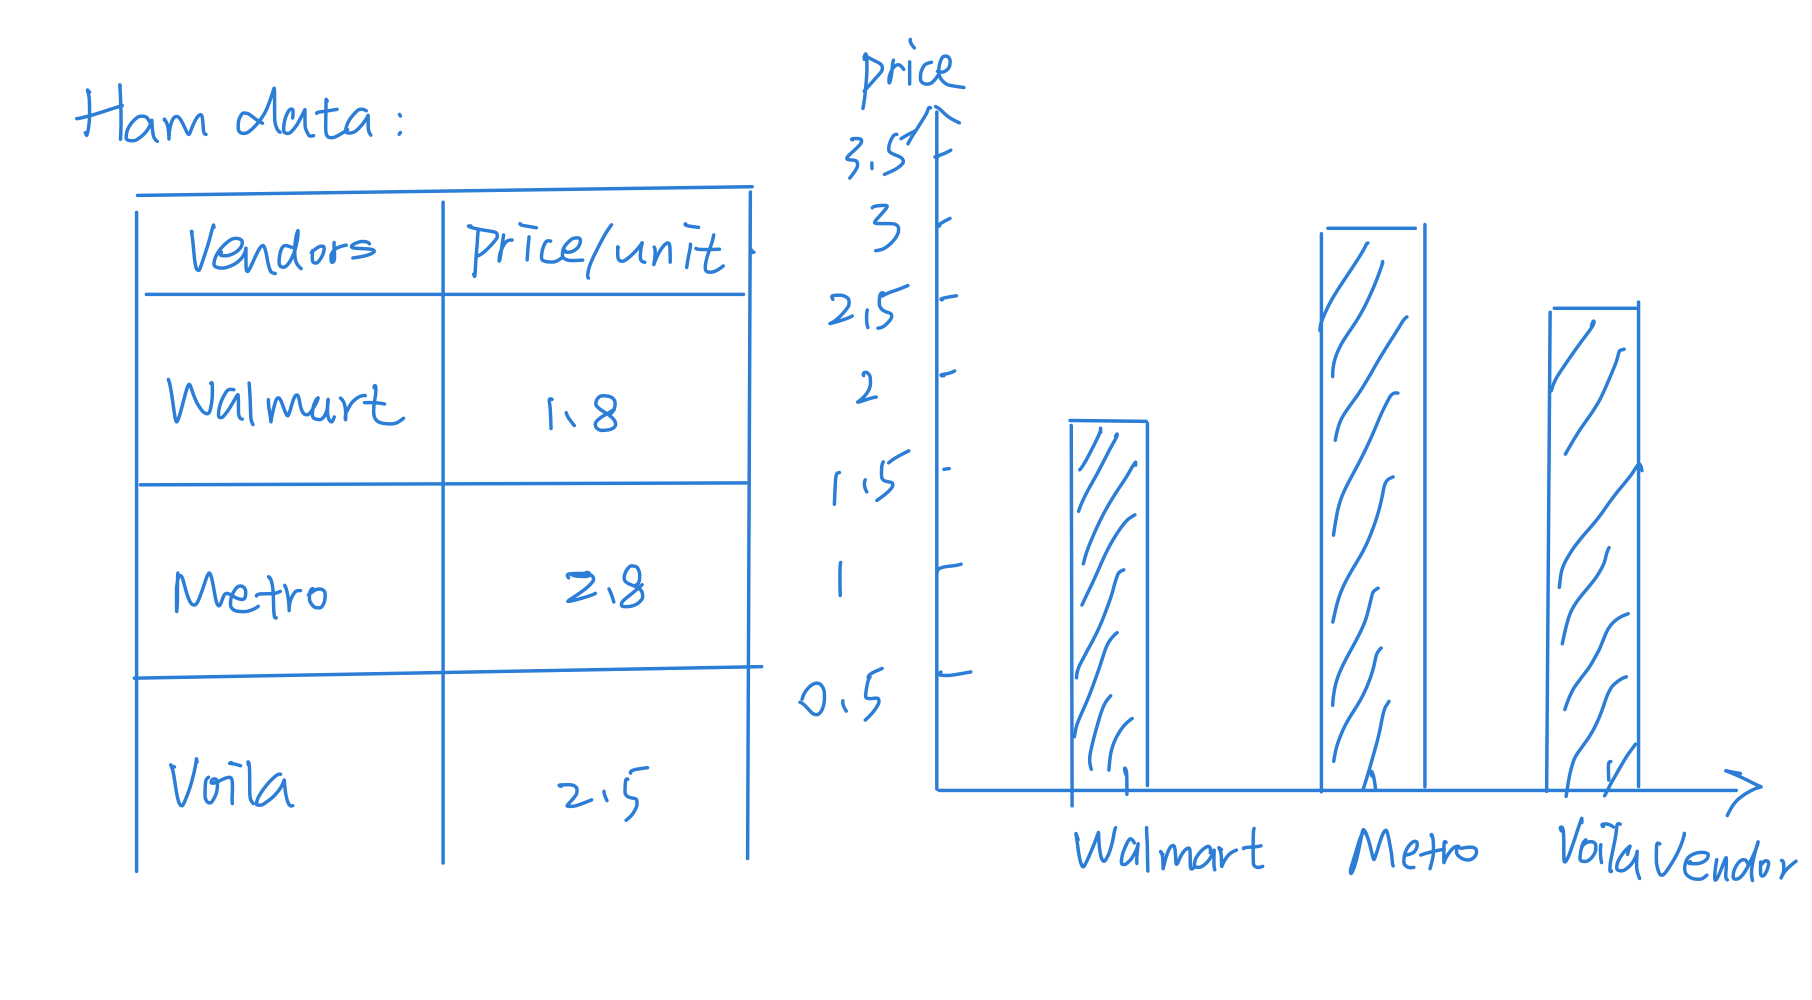 Ham data:
Vendors price/unit
Walmart 1.8
Metro 2.8
Voila 2.5
price
3.5
3
2.5
2
1.5
1
0.5
Walmart Metro Voila Vendor